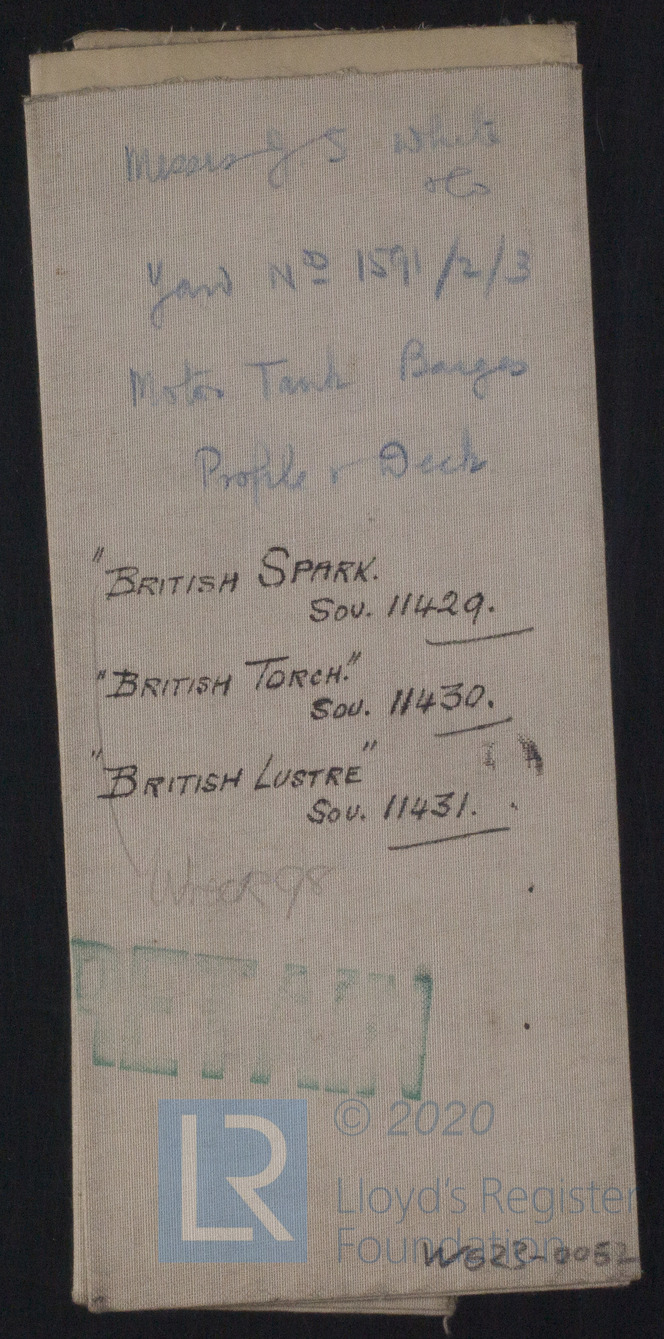 Messrs J S White
& Co
Yard Nº 1591/2/3
Motor Tank Barges
Profile & Deck
"BRITISH SPARK.
Sou. 11429.
"BRITISH TORCH."
Sou. 11430.
"BRITISH LUSTRE"
Sou. 11431.
RETAIN
LR
© 2020
Lloyd's Register
Foundation
W623-0052